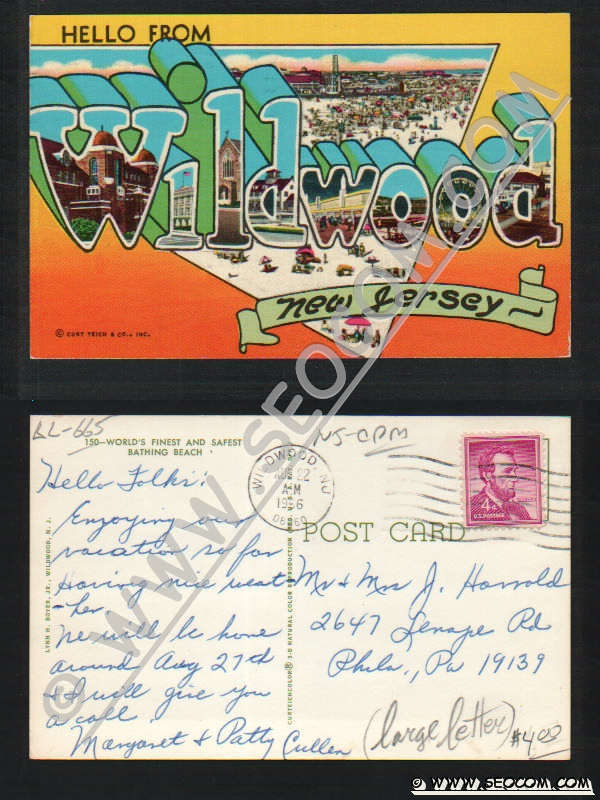 HELLO FROM
Wildwood
new Jersey
© CURT TEICH & CO., INC.
© WWW.SEOCOM.COM
LL-665
150—WORLD'S FINEST AND SAFEST
BATHING BEACH
NJ-CPM
WILDWOOD, NJ
AUG 22
AM
4¢
U.S. POSTAGE
POST CARD
Hello Folks:
Enjoying our
vacation so far
Having nice weat
-her.
We will be home
around Aug 27th
& I will give you
a call.
Margaret & Patty Cullen
LYNN H. BOYER, JR., WILDWOOD, N. J.
CURTEICHCOLOR® 3-D NATURAL COLOR REPRODUCTION
Mr & Mrs J. Horrold
2647 Lenape Rd
Phila., Pa 19139
(large letter)
$4.00
© WWW.SEOCOM.COM